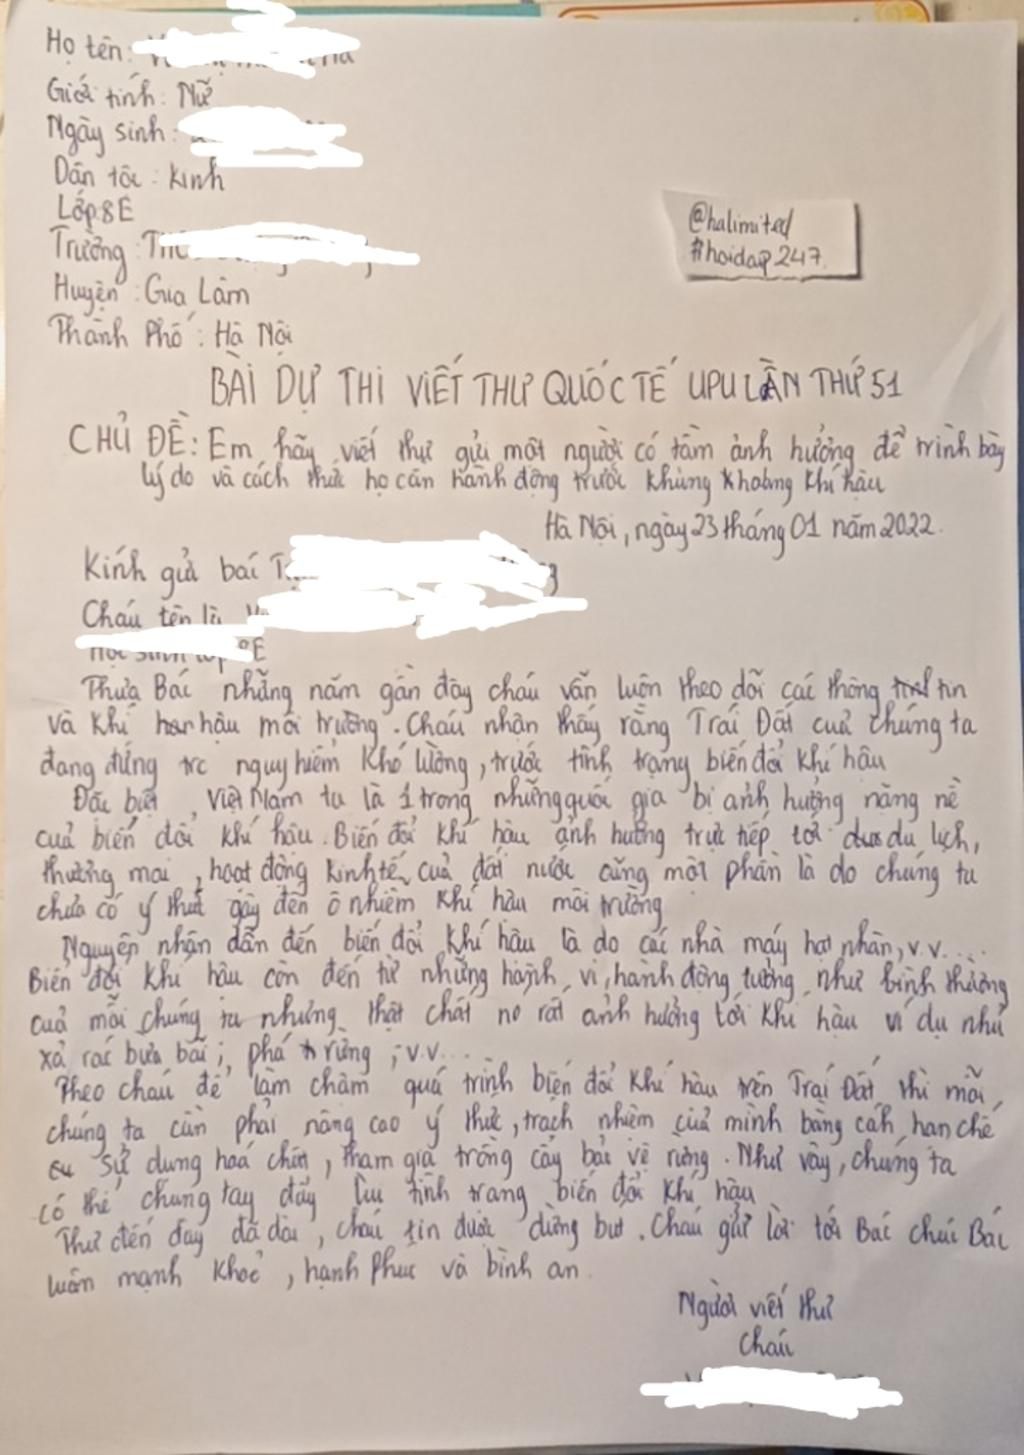 Họ tên:
Giới tính: Nữ
Ngày sinh:
Dân tộc: Kinh
Lớp 8E
@halimited
#hoidap247.
Trường:
Huyện: Gia Lâm
Thành Phố: Hà Nội
BÀI DỰ THI VIẾT THƯ QUỐC TẾ UPU LẦN THỨ 51
CHỦ ĐỀ: Em hãy viết thư gửi một người có tầm ảnh hưởng để trình bày
lý do và cách thức họ cần hành động trước khủng khoảng khí hậu
Hà Nội, ngày 23 tháng 01 năm 2022.
Kính gửi bác
Cháu tên là
8E
Thưa Bác những năm gần đây cháu vẫn luôn theo dõi các thông tin
và khí hậu môi trường. Cháu nhận thấy rằng Trái Đất của chúng ta
đang đứng trc nguy hiểm khó lường, trước tình trạng biến đổi khí hậu
Đặc biệt, Việt Nam ta là 1 trong những quốc gia bị ảnh hưởng nặng nề
của biến đổi khí hậu. Biến đổi khí hậu ảnh hưởng trực tiếp tới du lịch,
thương mại, hoạt động kinh tế của đất nước cũng một phần là do chúng ta
chưa có ý thức gây đến ô nhiễm khí hậu môi trường
Nguyên nhận dẫn đến biến đổi khí hậu là do các nhà máy hạt nhân, v.v....
Biến đổi khí hậu còn đến từ những hành vi, hành động tưởng như bình thường
của mỗi chúng ta nhưng thật chất nó rất ảnh hưởng tới khí hậu ví dụ như
xả rác bừa bãi; phá rừng; v.v...
Theo cháu để làm chậm quá trình biến đổi khí hậu trên Trái Đất thì mỗi
chúng ta cần phải nâng cao ý thức, trách nhiệm của mình bằng cách hạn chế
sử dụng hoá chất, tham gia trồng cây bảo vệ rừng. Như vậy, chúng ta
có thể chung tay đẩy lùi tình trạng biến đổi khí hậu
Thư đến đây đã dài, cháu xin được dừng bút. Cháu gửi lời tới Bác chúc Bác
luôn mạnh khoẻ, hạnh phúc và bình an.
Người viết thư
Cháu